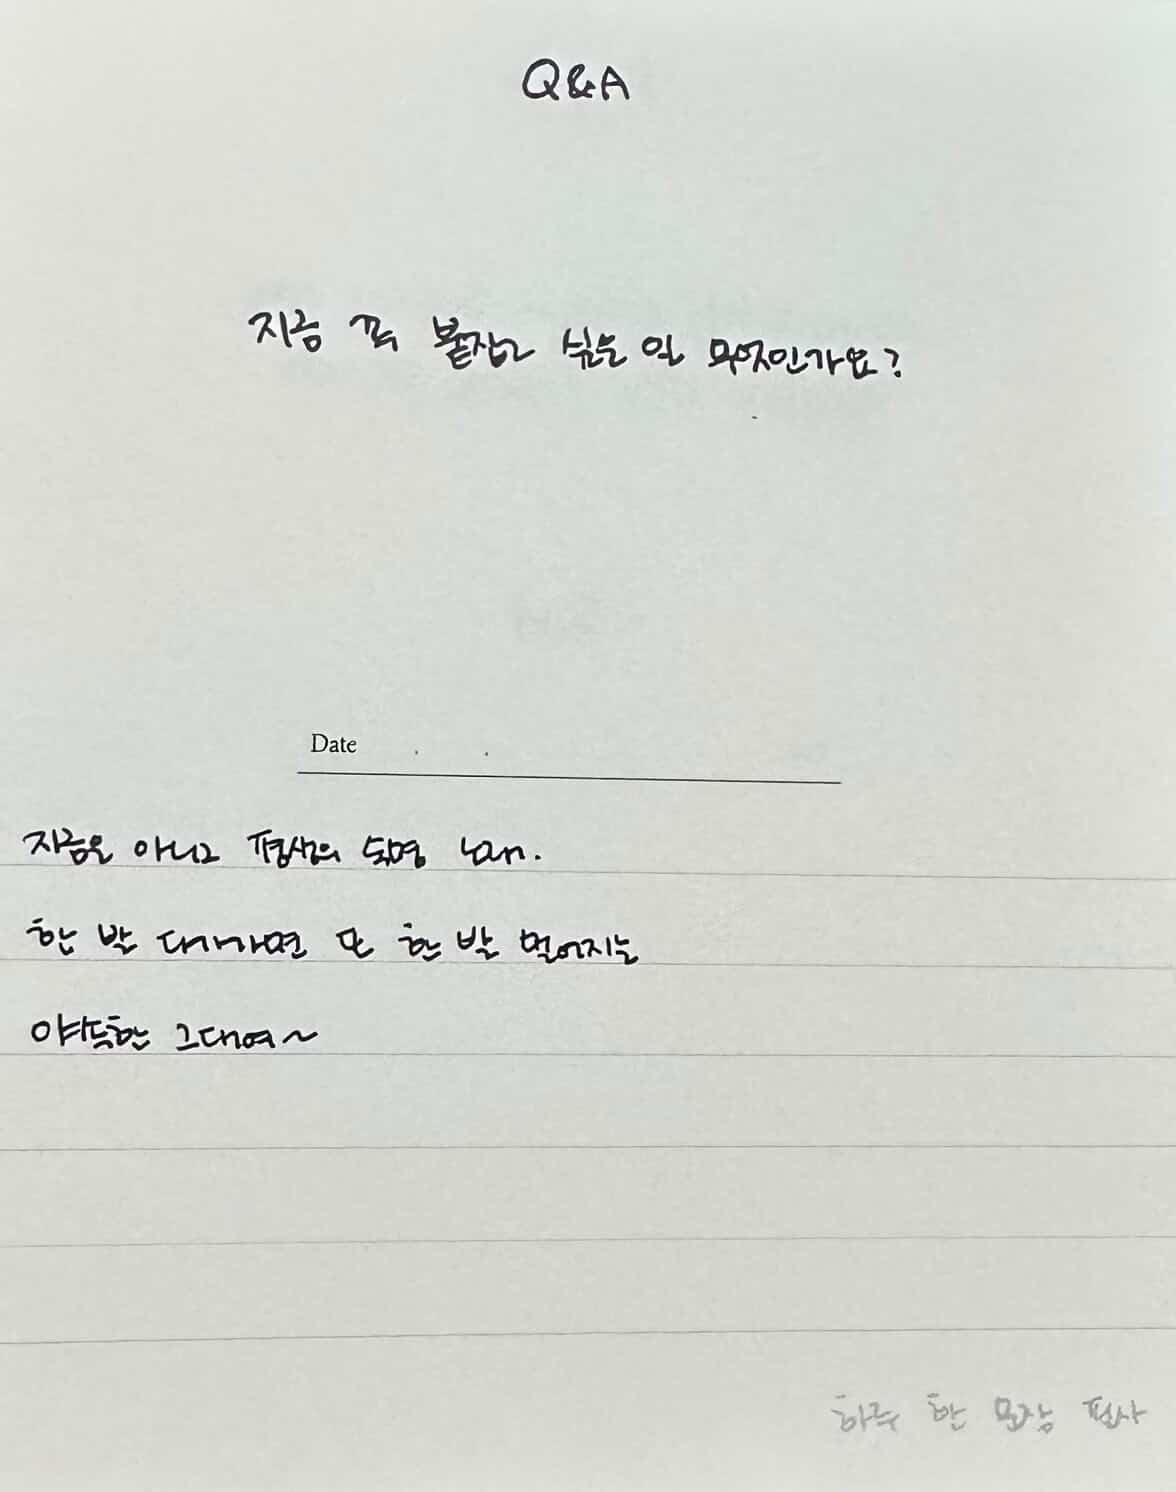 Q&A
지금 꼭 붙잡고 싶은 일 무엇인가요?
Date . .
지금은 아니고 평생의 숙명 your.
한 발 다가가면 또 한 발 멀어지는
야속한 그대여~
하루 한 문장 필사